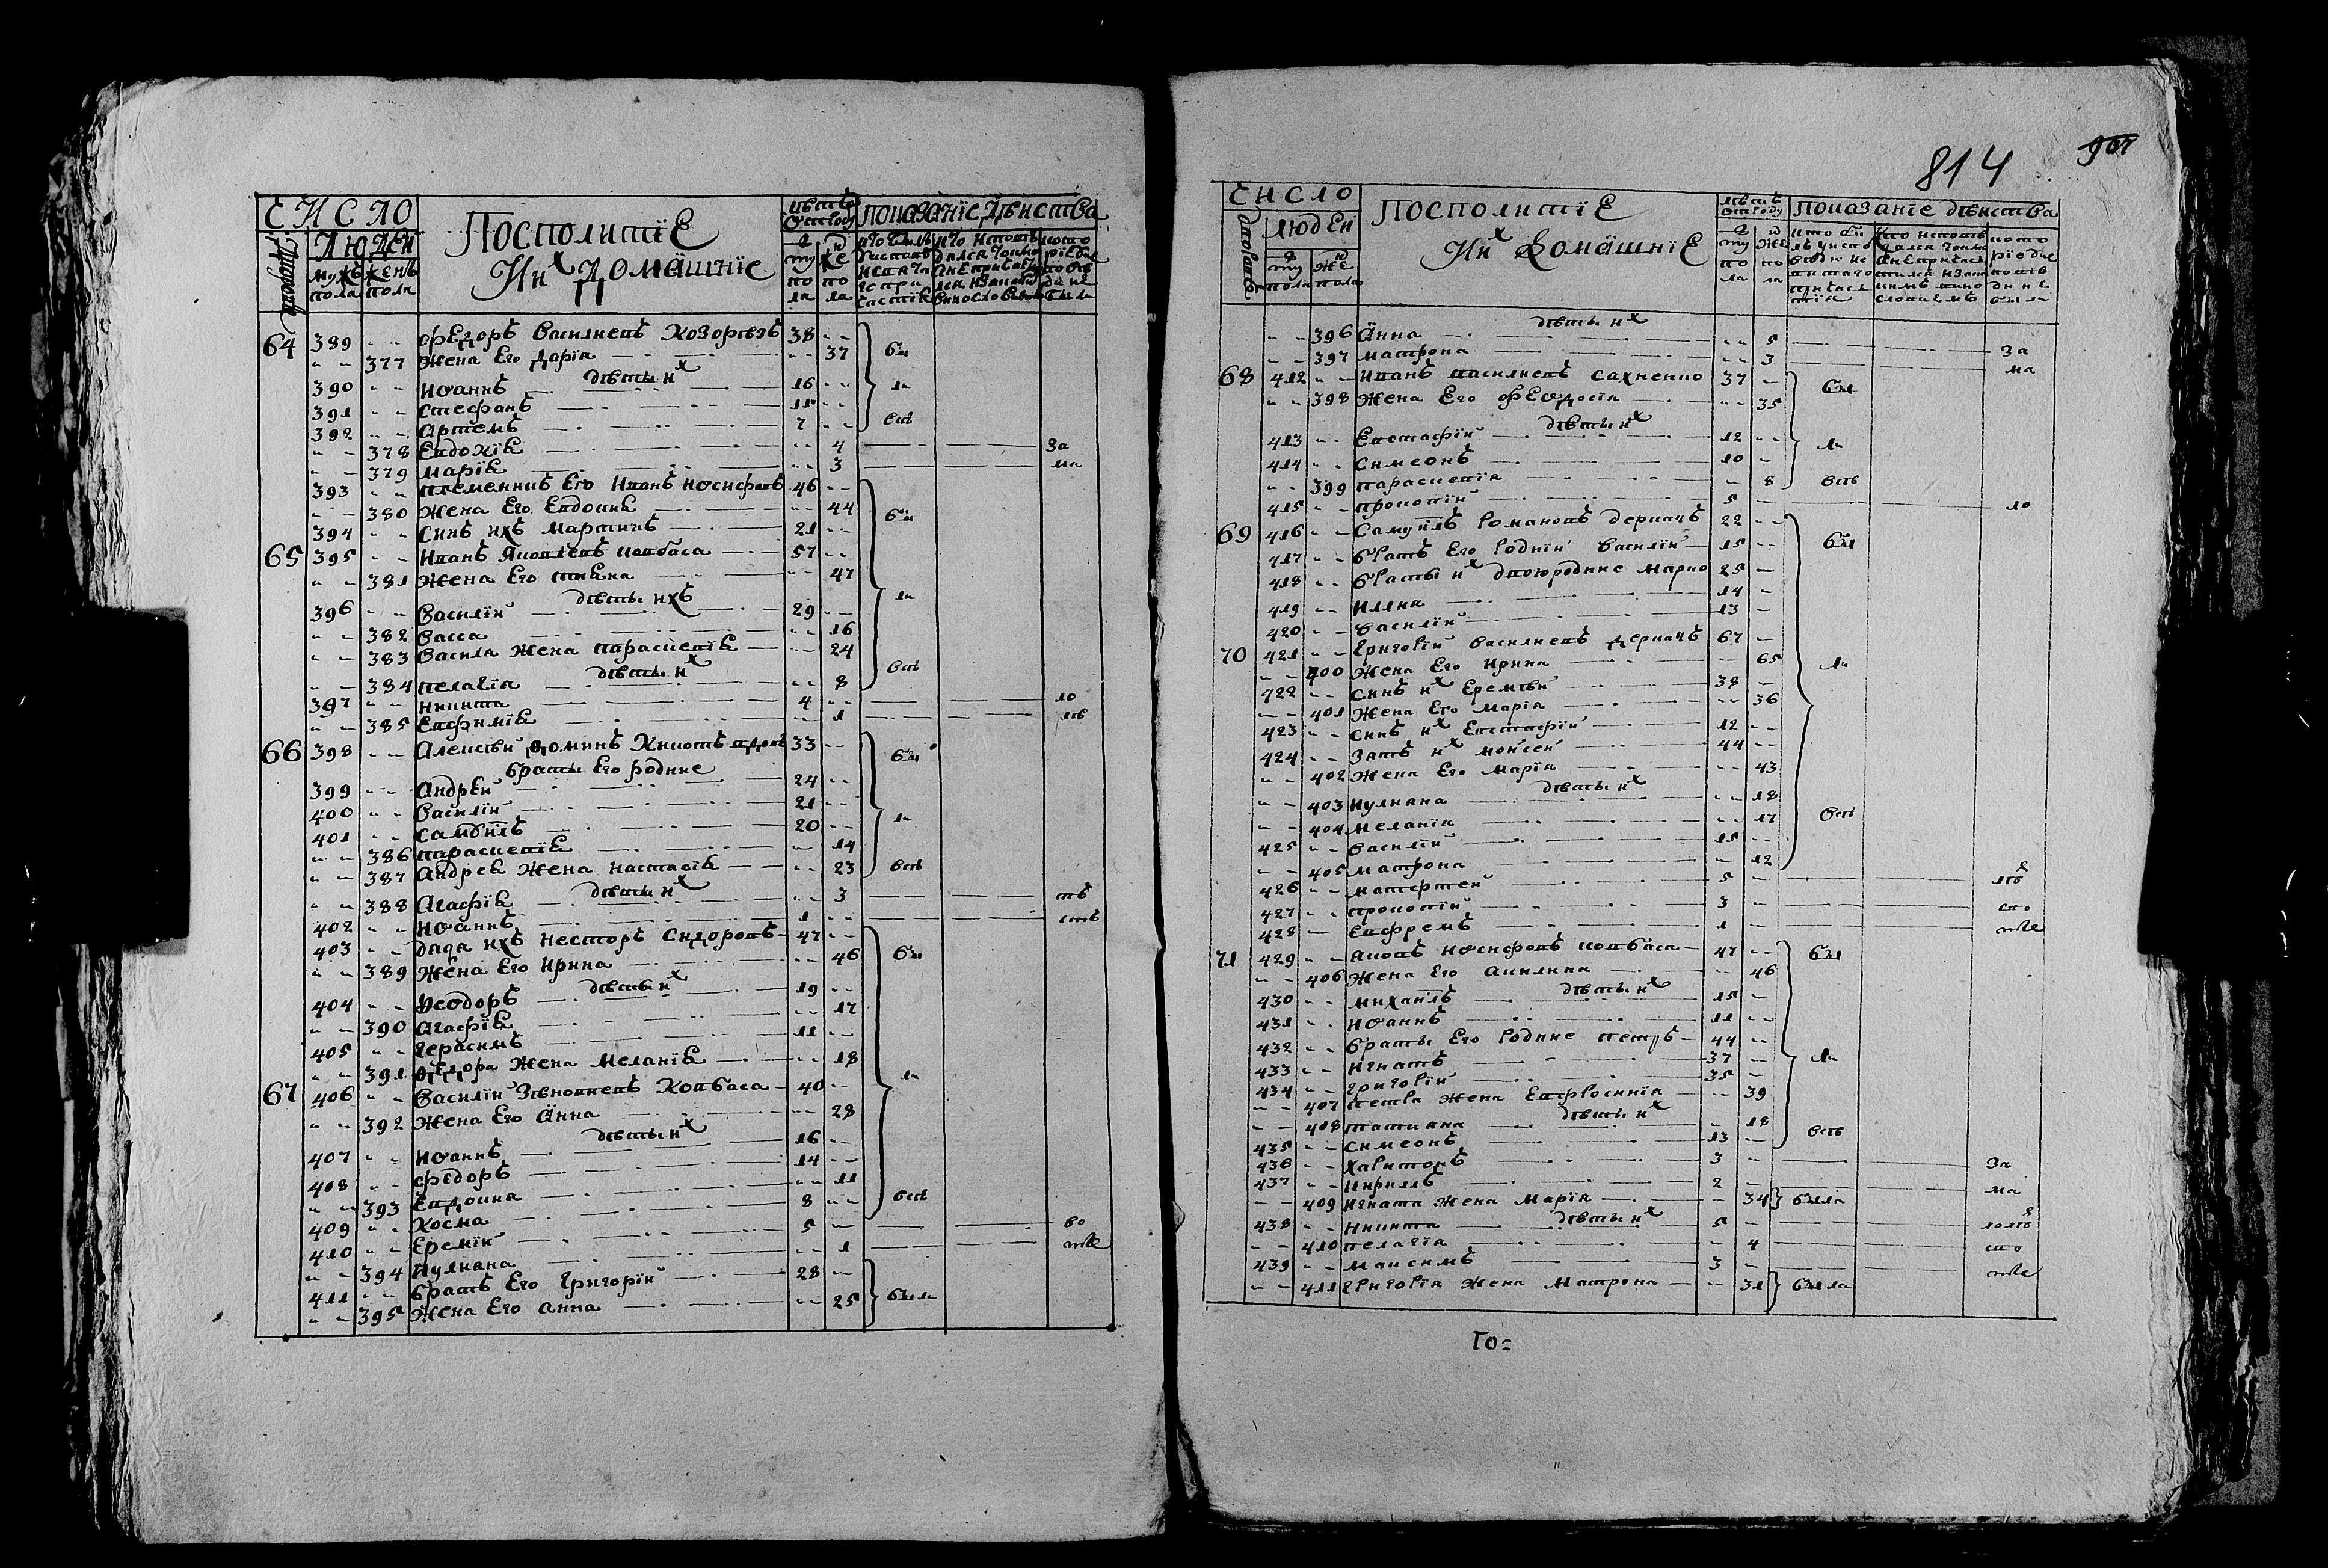 ЧИСЛО
Посполитіе
Их Домашніе
лѣтъ отъ роду
Показаніе дѣиства
Дворовъ
Людей
мужеска пола
женска пола
64 389 - - Федоръ Василиевъ Козорѣзъ 38 - -
- - 377 Жена Его Дарія - - 37
дѣти их
390 - - Иоаннъ 16 - -
391 - - Стефанъ 11 - -
392 - - Артемъ 7 - -
- - 378 Евдокіѣ - - 4 За
- - 379 Маріѣ - - 3 ма
393 - - племенникъ Его Иванъ Иосифовъ 46 - -
- - 380 Жена Его Евдокиѣ - - 44
394 - - Синъ ихъ Мартинъ 21 - -
65 395 - - Иванъ Яковлевъ Ковбаса 57 - -
- - 381 Жена Его 47
дѣти ихъ
396 - - Василій 29 - -
- - 382 Васса - - 16
- - 383 Васила Жена Парасцевіѣ - - 24
дѣти их
- - 384 Пелагія - - 8
397 - - Никита 4 - - ло
- - 385 Евфиміѣ - - 1 лѣ
66 398 - - Алексѣй Фоминъ 33 - -
брати Его родние
399 - - Андрей 24 - -
400 - - Василій 21 - -
401 - - Самуилъ 20 - -
- - 386 Парасцевіѣ - - 14
- - 387 Андрея Жена Настасіѣ - - 23
дѣти их
- - 388 Агафіѣ - - 3
402 - - Иоаннъ 1 - -
403 - - Дядя ихъ Несторъ Сидоровъ 47 - -
- - 389 Жена Его Ирина - - 46
дѣти их
404 - - Феодоръ 19 - -
- - 390 Агафіѣ - - 17
405 - - Герасимъ 11 - -
- - 391 Федора Жена Меланіѣ - - 18
67 406 - - Василій Зѣновиевъ Ковбаса 40 - -
- - 392 Жена Его Анна - - 28
дѣти их
407 - - Иоаннъ 16 - -
408 - - Федоръ 14 - -
- - 393 Евдокиа - - 11
409 - - Косма 8 - -
410 - - Еремій 5 -
- - 394 Иулиана - - 1
411 - - Братъ Его Григорій 28 - -
- - 395 Жена Его Анна - - 25 были
814
907
ЧИСЛО
Посполитіе
Их Домашніе
лѣтъ отъ роду
Показаніе дѣиства
Людей
дѣти их
- - 396 Анна - - 5 За
- - 397 Матрона - - 3 ма
68 412 - - Иванъ Василиевъ Сахненко 37 -
- - 398 Жена Его Феодосія - - 35
дѣти их
413 - - Евстафій 12 - -
414 - - Симеонъ 10 -
- - 399 Парасцевія - 8
415 - - Прокопій 5 - ло
69 416 - - Самуилъ Романовъ Деркачъ 22 - -
417 - - Братъ Его Родній Василій 15 - -
418 - - Брати их двоюродние Марко 25 -
419 - - Иляна 14 -
420 - - Василій 13 -
70 421 - - Григорій Василиевъ Деркачъ 67 -
- - 400 Жена Его Ирина - 65
422 - - Синъ их Еремѣй 38 -
- - 401 Жена Его Марія - - 36
423 - - Синъ их Евстафій 12 - -
424 - - Зять их Мойсей 44 - -
- - 402 Жена Его Марія - - 43
дѣти их
- - 403 Иулиана - - 18
- - 404 Меланія - - 17
425 - - Василій 15 - -
- - 405 Матрона - 12
426 - - Матфей 5 -
427 - - Прокопій 3 -
428 - Евфремъ 1 -
71 429 - - Яковъ Иосифовъ Ковбаса 47 - -
- - 406 Жена Его Акилина - - 46
дѣти их
430 - - Михаилъ 15 -
431 - - Иоаннъ 11 - -
432 - - Брати Его Родние Петръ 44 - -
433 - - Игнатъ 37 -
434 - - Григорій 35 -
- - 407 Петра Жена Евфросинія - - 39
дѣти их
- - 408 Татиана - - 18
435 - - Симеонъ 13 -
436 - - Харитонъ 3 - За
437 - - Кирилъ 2 - ма
- - 409 Игната Жена Марія - 34 была
дѣти их
438 - - Никита 5 -
- - 410 Пелагія - 4
439 - - Максимъ 3 -
- - 411 Григорія Жена Матрона - - 31 была
Го: